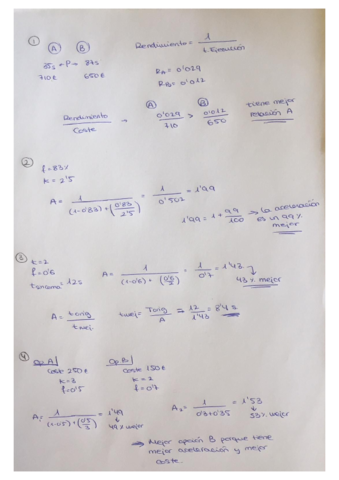 ①
Ⓐ Ⓑ
35s ← P → 87s
710€ 650€
Rendimiento = 1 / t. Ejecución
RA = 0'029
RB = 0'012
Rendimiento / Coste → Ⓐ 0'029 / 710 > Ⓑ 0'012 / 650 tiene mejor relación A
②
f = 83%
k = 2'5
A = 1 / (1-0'83) + (0'83 / 2'5) = 1 / 0'502 = 1'99
1'99 = 1 + 99 / 100 → la aceleración es un 99% mejor
③
k = 2
f = 0'6
12s
A = 1 / (1-0'6) + (0'6 / 2) = 1 / 0'7 = 1'43
43% mejor
A = torig / tmej.
tmejr = Torig / A = 12 / 1'43 = 8'4 s
④
Op. A|
Cost 250€
k = 3
f = 0'5
Op. B|
coste 150€
k = 2
f = 0'7
A1 = 1 / (1-0'5) + (0'5 / 3) = 1'49
49% mejor
A2 = 1 / 0'3+0'35 = 1'53
53% mejor
→ Mejor opción B porque tiene
mejor aceleración y mejor
coste.